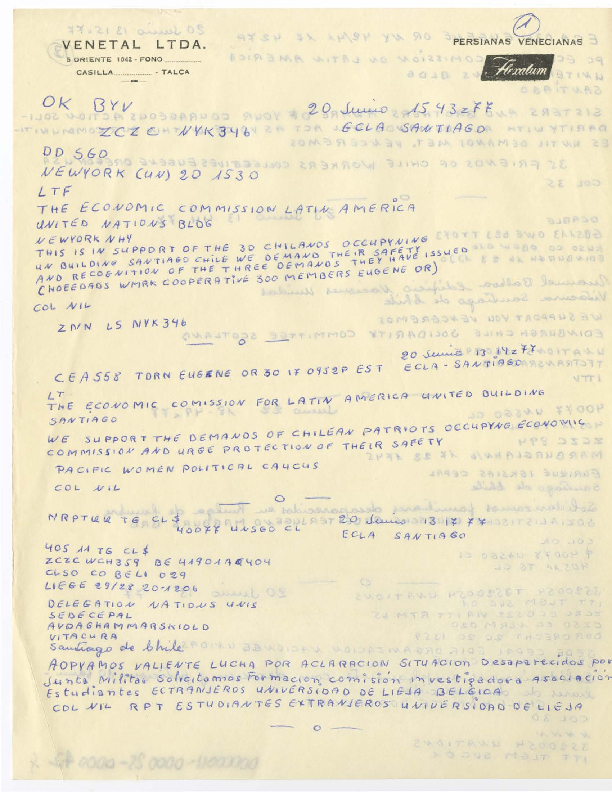 VENETAL LTDA.
5 ORIENTE 1062 - FONO
CASILLA - TALCA
PERSIANAS VENECIANAS
Flexalum
1
OK BYV
20 Junio 1543z77
ZCZC NYK346
ECLA SANTIAGO
DD SGO
NEWYORK (UN) 20 1530
LTF
THE ECONOMIC COMMISSION LATIN AMERICA
UNITED NATIONS BLDG
NEWYORK NHY
THIS IS IN SUPPORT OF THE 30 CHILANOS OCCUPYNING
UN BUILDING SANTIAGO CHILE WE DEMAND THEIR SAFETY
AND RECOGNITION OF THE THREE DEMANDS THEY HAVE ISSUED
(HOEEDADS WMRK COOPERATIVE 300 MEMBERS EUGENE OR)
COL NIL
ZNN LS NYK346
20 Junio 13 14z77
CEA558 TDRN EUGENE OR 30 17 0952P EST
ECLA-SANTIAGO
LT
THE ECONOMIC COMISSION FOR LATIN AMERICA UNITED BUILDING
SANTIAGO
WE SUPPORT THE DEMANDS OF CHILEAN PATRIOTS OCCUPYNG ECONOMIC
COMMISSION AND URGE PROTECTION OF THEIR SAFETY
PACIFIC WOMEN POLITICAL CAUCUS
COL NIL
NRPTUU TG CL$
20 Junio 13 17 77
40077 UNSGO CL
ECLA SANTIAGO
405 11 TG CL$
ZCZC WCH359 BE 41901A 404
CLSO CO BELI 029
LIEGE 29/28 20-1206
DELEGATION NATIONS UNIS
SEDECEPAL
AVDAGHAMMARSKIOLD
VITACURA
Santiago de Chile
AOPYAMOS VALIENTE LUCHA POR ACLARACION SITUACION Desaparecidos por
Junta Militar Solicitamos Formacion Comisión Investigadora Asociación
Estudiantes ECTRANJEROS UNIVERSIDAD DE LIEJA BELGICA
COL NIL RPT ESTUDIANTES EXTRANJEROS UNIVERSIDAD DE LIEJA